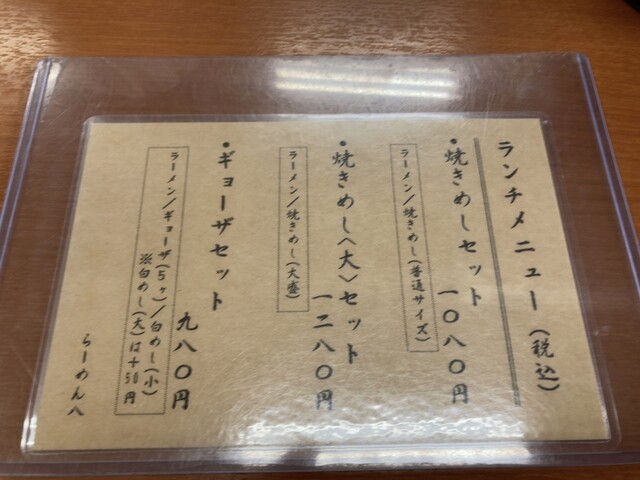 ランチメニュー(税込)
・焼きめしセット
一〇八〇円
ラーメン/焼きめし(普通サイズ)
・焼きめし〈大〉セット
一二八〇円
ラーメン/焼きめし(大盛)
・ギョーザセット
九八〇円
ラーメン/ギョーザ(5ヶ)/白めし(小)
※白めし(大)は+50円
らーめん八